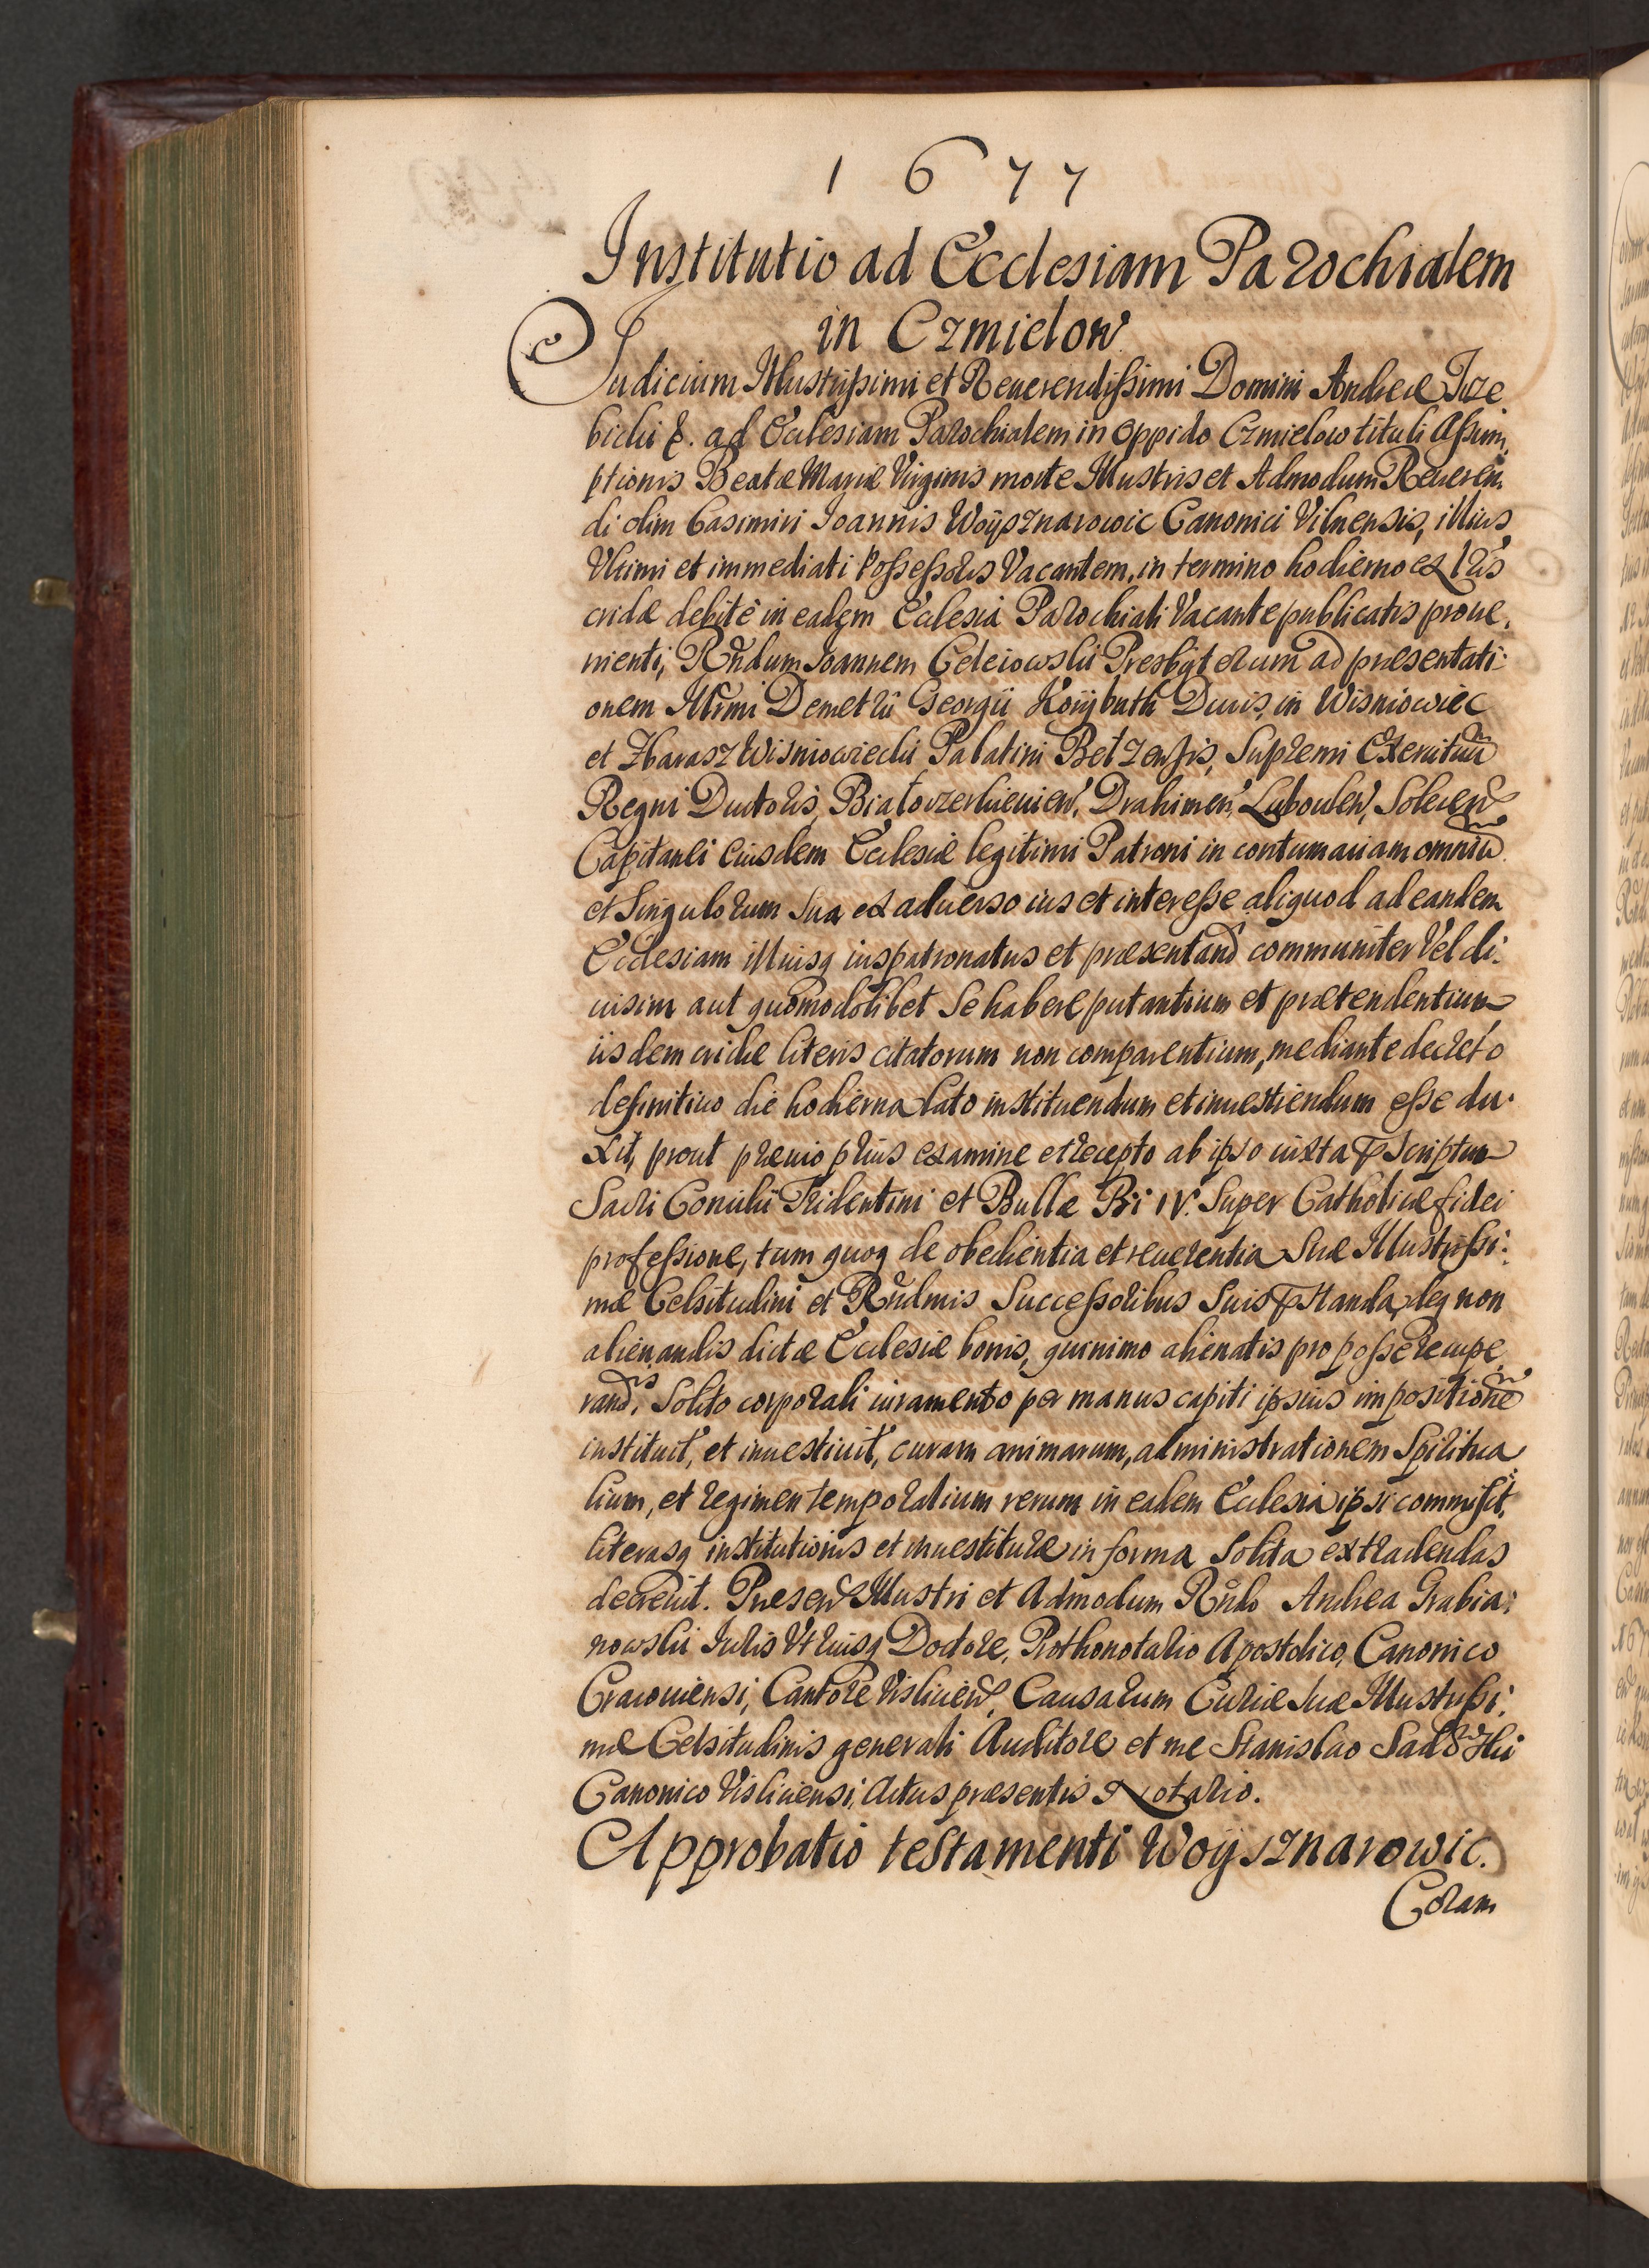 1677
Institutio ad Ecclesiam Parochialem
in Czmielow
Judicium Illustrissimi et Reuerendissimi Domini Andreæ Trze
bicki &. ad Ecclesiam Parochialem in oppido Czmielow tituli Assum,
ptionis Beatæ Mariæ Virginis morte Illustris et Admodum Reueren,
di olim Casimiri Joannis Woÿsznarowic Canonici Vilnensis, illius
Vltimi et immediati Possessoris Vacantem, in termino hodierno ex lris
cridæ debitè in eadem Ecclesia Parochiali Vacante publicatis proue,
nienti, Rndum Joannem Geleiowski Presbÿterum ad præsentati:
onem Illrmi Demetrii Georgii Korÿbuth Ducis in Wisniowiec
et Zbarasz Wisniowiecki Palatini Belzensis, Supremi Exercituū
Regni Ductoris, Bialocerkieuien, Drahimen, Luboulen, Solecen
Capitanei eiusdem Ecclesiæ legitimi Patroni in contumaciam omniū
et Singulorum sua ex aduerso ius et interesse aliquod ad eandem
Ecclesiam illiusq iuspatronatus et præsentand communiter Vel di:
uisim aut quomodolibet Se habere putantium et prætendentium
iisdem cridæ literis citatorum non comparentium, mediante decreto
definitiuo die hodierna lato instituendum et inuestiendum esse du,
xit, prout præuio prius examine et recepto ab ipso iuxta præscriptum
Sacri Concilii Tridentini et Bullæ Pii IV. Super Catholicæ fidei
professione, tum quoq de obedientia et reuerentia Suæ Illustrissi:
mæ Celsitudini et Rndmis Successoribus Suis præstanda, deq non
alienandis dictæ Ecclesiæ bonis, quinimo alienatis pro posse recupe,
rand, Solito corporali iuramento per manus capiti ipsius impositionē
instituit, et inuestiuit, curam animarum, administrationem Spiritua
lium, et regimen temporalium rerum in eadem Ecclesia ipsi commisit,
literasq institutionis et inuestituræ in forma Solita extradendas
decreuit. Præsen Illustri et Admodum Rndo Andrea Grabia:
nowski Juris Vtriusq Doctore, Prothonotario Apostolico, Canonico
Cracouiensi, Cantore Visliciен, Causarum Curiæ Suæ Illustrissi:
mæ Celsitudinis generali Auditore et me Stanislao
Canonico Visliciensi, Actus præsentis Notario.
Approbatio testamenti Woÿsznarowic.
Coram